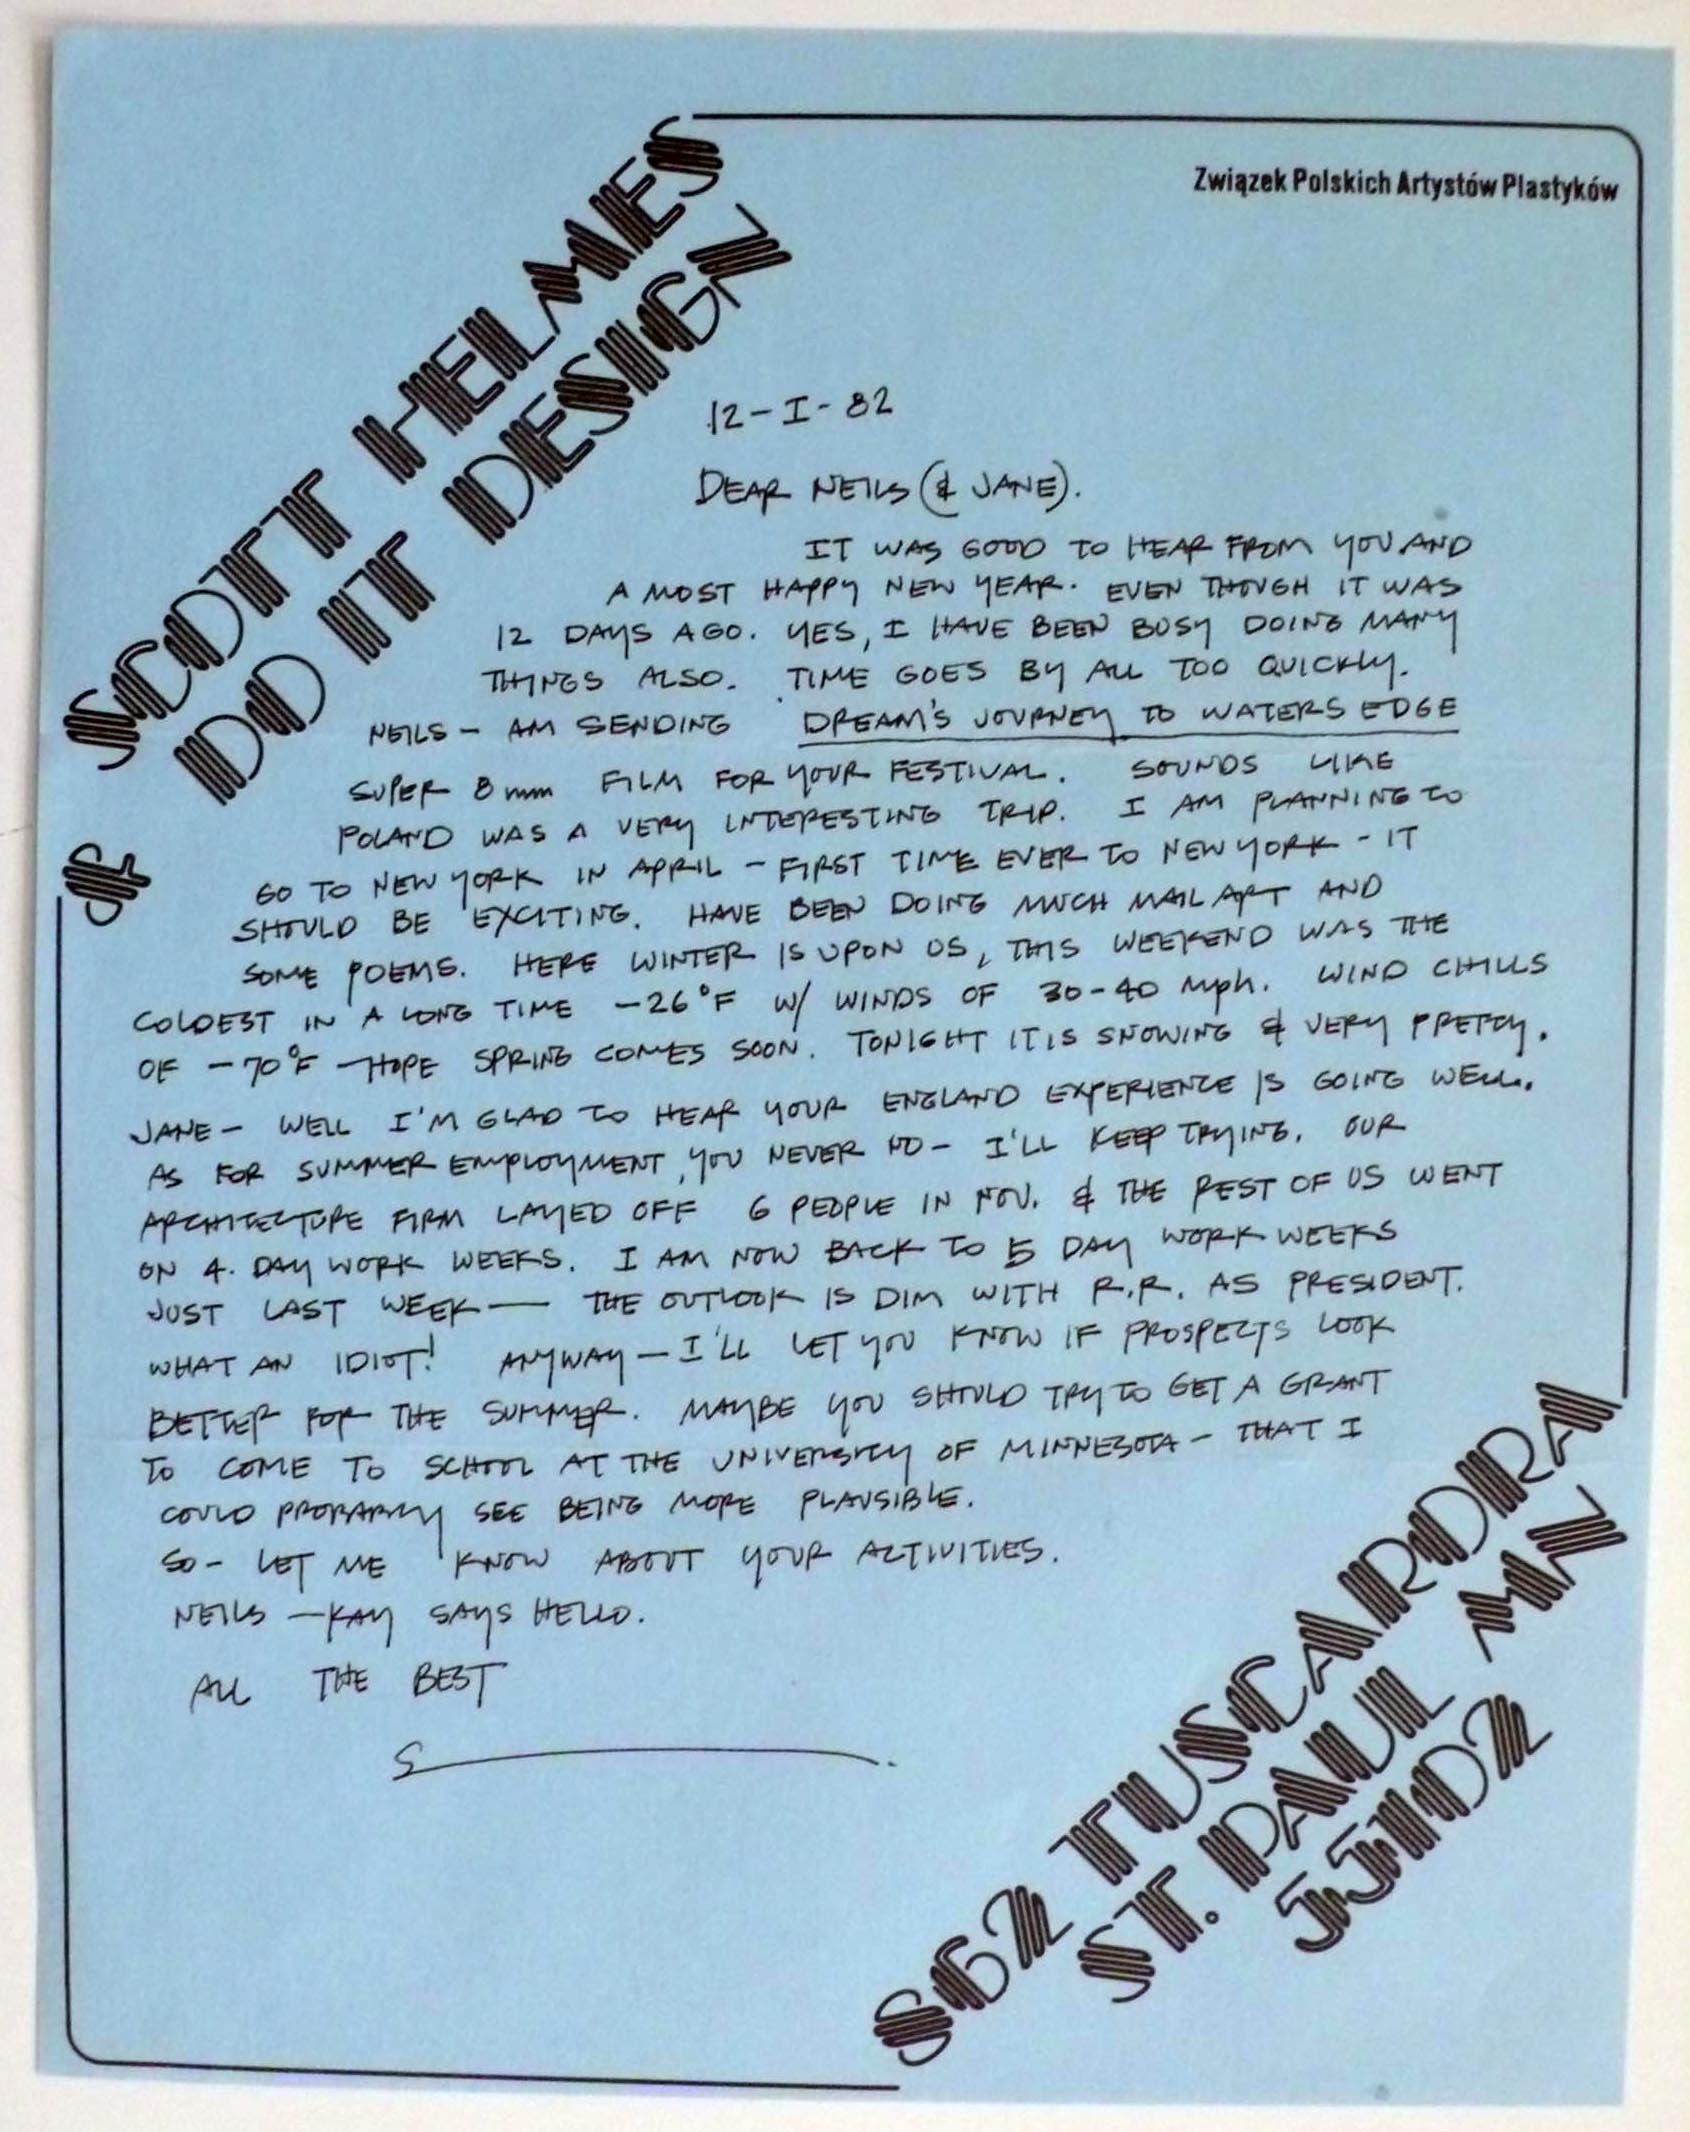 Związek Polskich Artystów Plastyków
SCOTT HELMES
DO IT DESIGN
12-I-82
DEAR NEILS (& JANE).
IT WAS GOOD TO HEAR FROM YOU AND
A MOST HAPPY NEW YEAR. EVEN THOUGH IT WAS
12 DAYS AGO. YES, I HAVE BEEN BUSY DOING MANY
THINGS ALSO. TIME GOES BY ALL TOO QUICKLY.
NEILS - AM SENDING DREAM'S JOURNEY TO WATERS EDGE
SUPER 8mm FILM FOR YOUR FESTIVAL. SOUNDS LIKE
POLAND WAS A VERY INTERESTING TRIP. I AM PLANNING TO
GO TO NEW YORK IN APRIL - FIRST TIME EVER TO NEW YORK - IT
SHOULD BE EXCITING. HAVE BEEN DOING MUCH MAIL ART AND
SOME POEMS. HERE WINTER IS UPON US, THIS WEEKEND WAS THE
COLDEST IN A LONG TIME -26°F W/ WINDS OF 30-40 mph. WIND CHILLS
OF -70°F - HOPE SPRING COMES SOON. TONIGHT IT IS SNOWING & VERY PRETTY.
JANE - WELL I'M GLAD TO HEAR YOUR ENGLAND EXPERIENCE IS GOING WELL.
AS FOR SUMMER EMPLOYMENT, YOU NEVER NO - I'LL KEEP TRYING. OUR
ARCHITECTURE FIRM LAYED OFF 6 PEOPLE IN NOV. & THE REST OF US WENT
ON 4. DAY WORK WEEKS. I AM NOW BACK TO 5 DAY WORK WEEKS
JUST LAST WEEK — THE OUTLOOK IS DIM WITH R.R. AS PRESIDENT.
WHAT AN IDIOT! ANYWAY - I'LL LET YOU KNOW IF PROSPECTS LOOK
BETTER FOR THE SUMMER. MAYBE YOU SHOULD TRY TO GET A GRANT
TO COME TO SCHOOL AT THE UNIVERSITY OF MINNESOTA - THAT I
COULD PROBABLY SEE BEING MORE PLAUSIBLE.
SO - LET ME KNOW ABOUT YOUR ACTIVITIES.
NEILS - KAY SAYS HELLO.
ALL THE BEST
S
862 TUSCARORA
ST. PAUL MN
55102